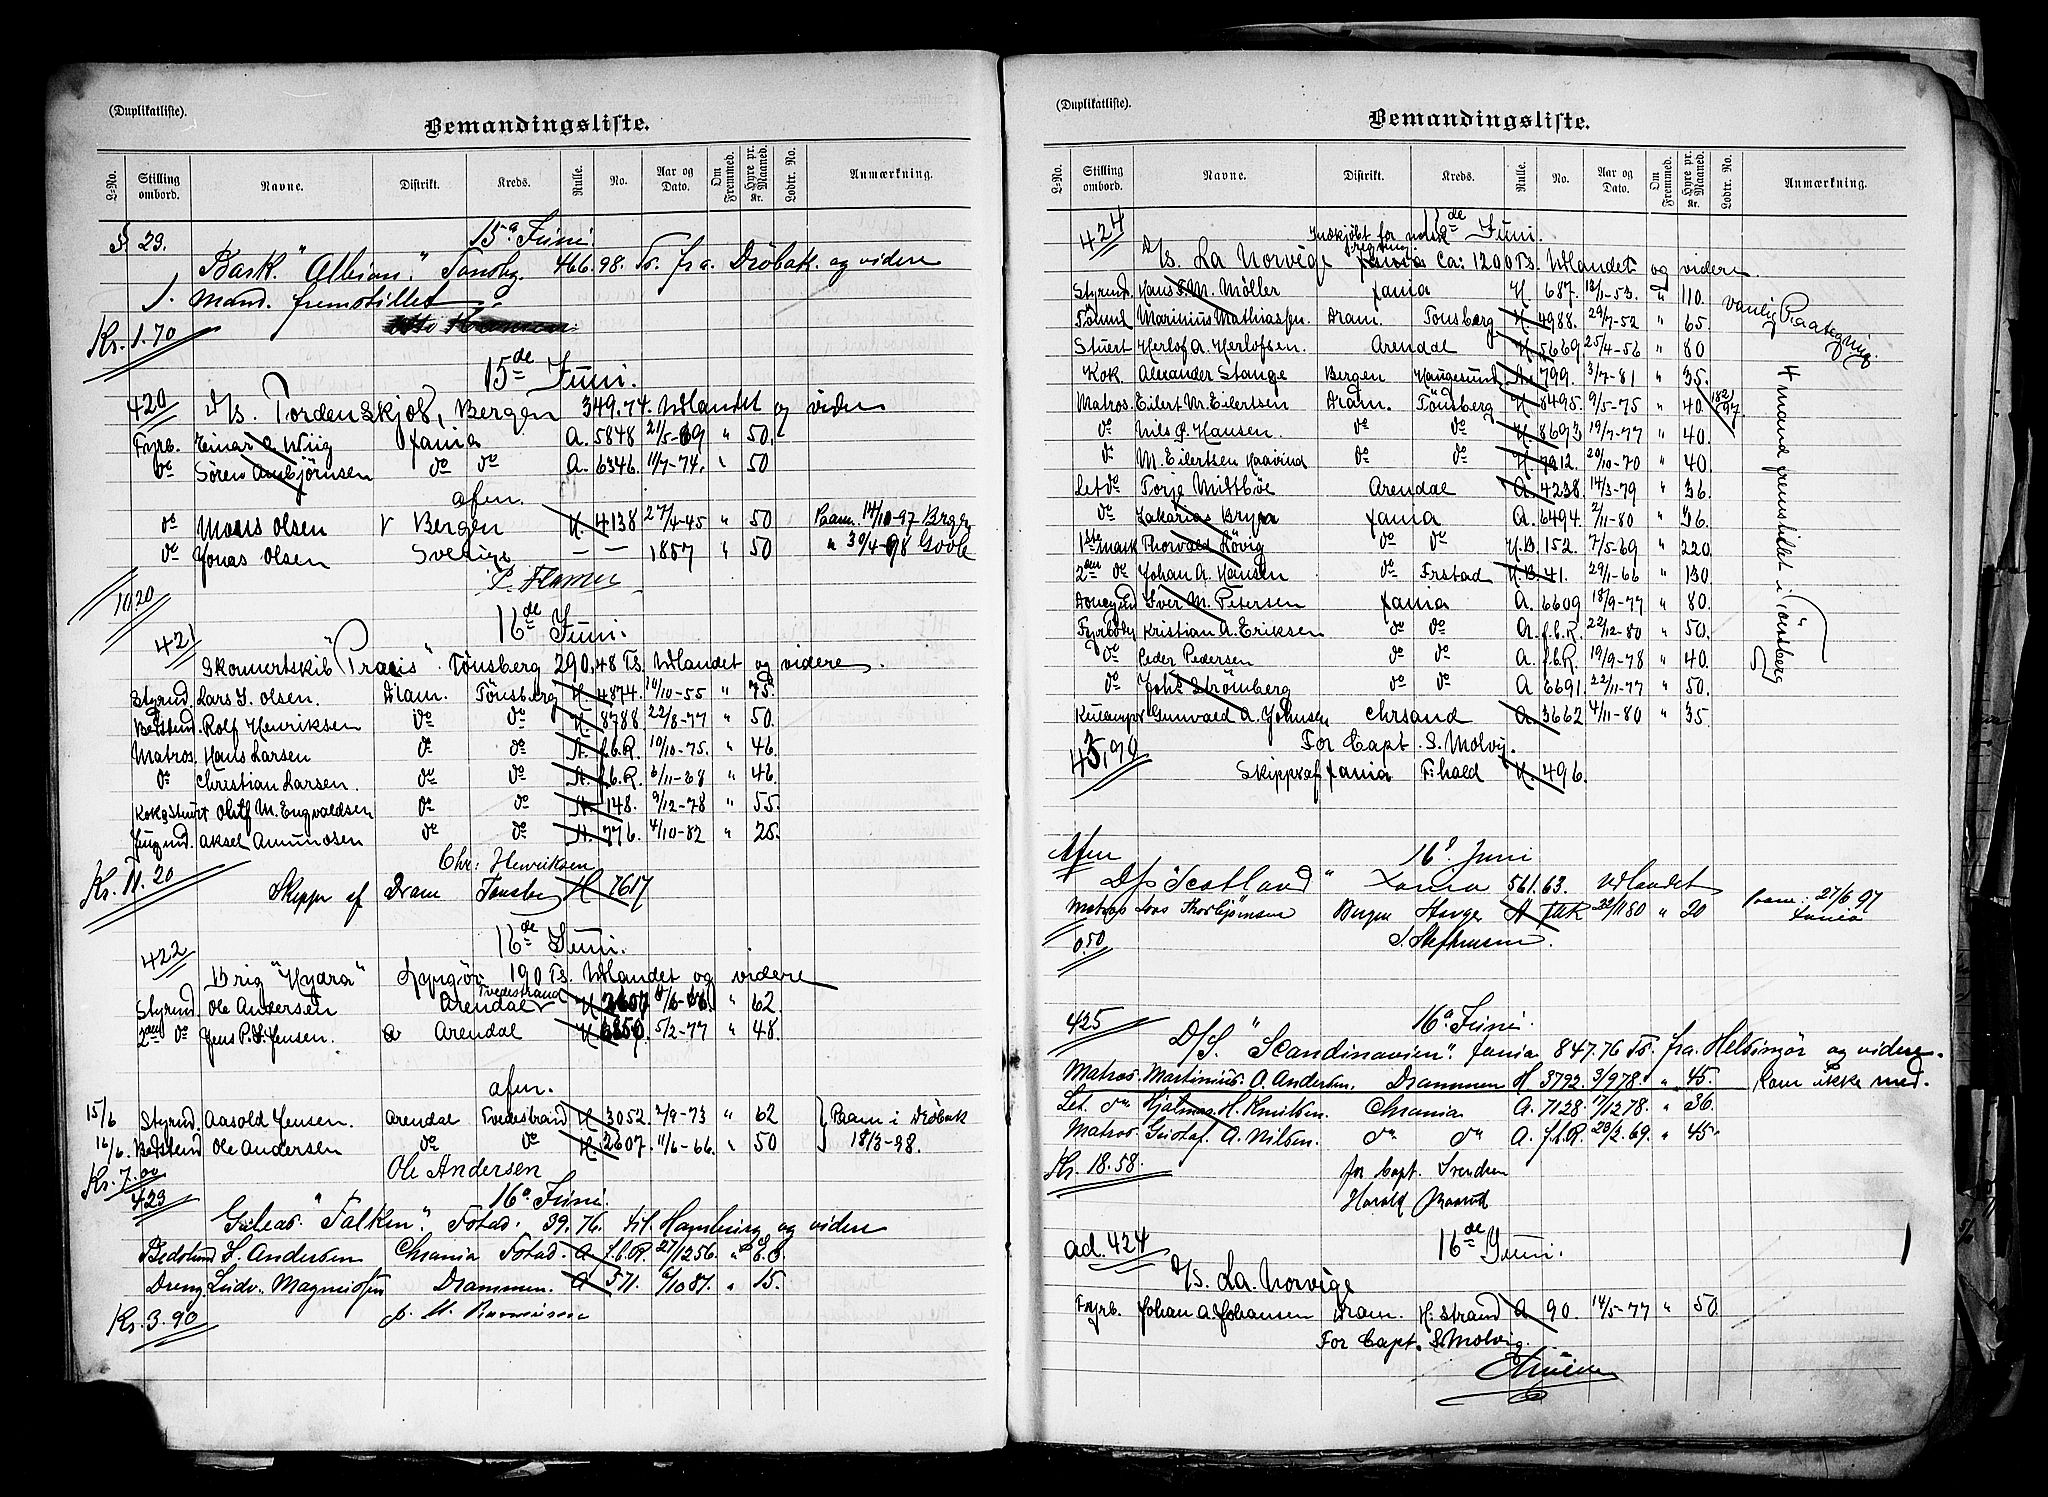 (Duplikatliste).
Bemandingsliste.
L-No. Stilling ombord. Navne. Distrikt. Kreds. Rulle. No. Aar og Dato. Om Fremmed. Hyre pr. Maaned. Kr. Lodtr. No. Anmærkning.
§ 29. 15d Juni
Bark. "Albion." Tønsbg. 466.98. Ts. fra. Dröbak. og videre
1. Mand. fremstillet
Kr. 1.70
15de Juni.
420 D/s. Tordenskjold, Bergen 349.74. Udlandet og videre
Fyrb. Einar A. Wiig Xania A. 5848 21/5-69 " 50.
do Sören Ambjörnsen do do A. 6346. 11/7-74. " 50
afm.
do Mons Olsen V Bergen H. 4138 27/4-45 " 50 Paam. 14/10-97 Brgen
do Jonas Olsen Sverige — — 1857 " 50 " 30/4-98
10.20
16de Juni.
421 Skonnertskib "Præcis". Tönsberg 290,48 Ts. Udlandet og videre.
Styrmd. Lars J. Olsen. Dram. Tönsberg H. 4874. 10/10-55 " 75
Bedstmd. Rolf Henriksen do do H. 8788 22/8-77 " 50.
Matros. Hans Larsen do do A. f.b.R. 19/10-75. " 46.
do Christian Larsen. do do A. f.b.R. 6/11-68 " 46
Kok&Stuert Oluf M. Engvaldsen do do A. 148. 9/12-78 " 55.
Jungmd. Aksel Amundsen do do A. 776. 4/10-82 " 25.
Chr: Henriksen
Kr. 11.20 Skipper af Dram Tønsberg H 7617
16de Juni.
422 Brig "Hydra" Lyngör 190 Ts. Udlandet og videre
Styrmd. Ole Andersen Arendal Tvedestrand H 2607 11/6-66. " 62
2den do Jens P. S. Jensen. Arendal H 6850. 5/2-77 " 48.
afm.
15/6 Styrmd. Aasold Jensen. Arendal Tvedestrand H. 3052 2/9-73 " 62 Paam i Dröbak
16/6. Bedstemd Ole Andersen do do H. 2607. 11/6-66. " 50 18/3-98.
Kr. 7.00 Ole Andersen
423 16d Juni.
Galeas. "Falken". Fstad. 39.76. til. Hamburg og videre
Bedstmd S. Andersen Chrania Fstad. A f.b.R. 27/12 56. " 60
Dreng Ludv. Magnussen Drammen. A 571. 6/10 81. " 15.
Kr. 3.90
(Duplikatliste).
Bemandingsliste.
L-No. Stilling ombord. Navne. Distrikt. Kreds. Rulle. No. Aar og Dato. Om Fremmed. Hyre pr. Maaned. Kr. Lodtr. No. Anmærkning.
424 Indkjöbt for norsk regning. Juni.
D/s. La Norvège Ca: 1200 Ts. Udlandet og videre
Styrmd. Hans F. M. Möller Xania H 687. 12/1-53. " 110. Vanlig Paategning.
Marinius Mathiassen Dram. Tönsberg H 4988. 29/7-52 " 65.
Stuert Herlof A. Herlofsen. Arendal H. 5669. 25/4-56 " 80
Kok. Alexander Stange Bergen Haugesund A. 799. 3/7-81 " 35.
Matros. Eilert M. Eilertsen Dram. Tönsberg H 8495. 9/5-75 " 40. 182/97
do Nils P. Hansen. do do H. 8693 19/7-77 " 40.
do M. Eilertsen Haavind do do H. 7912. 20/10-70 " 40
Let do Torje Midtböe Arendal A. 4238. 14/3-79 " 36.
do Zakarias Bryn Xania A. 6494. 2/11-80 " 36.
1ste mask Thorvald Hövig do do H.B. 152. 7/5-69 " 220.
2den do Johan A. Hansen do Frstad H.B. 41. 29/11-66 " 130
Donkeymd Iver M. Petersen Xania A. 6609 18/9-77 " 80.
Fyrböder Kristian A. Eriksen do do A. f.b.R. 22/12-80 " 50.
do Peder Pedersen do do A. f.b.R. 19/9-78 " 40.
do Johs Strömberg do do A 6691. 22/11-77 " 50.
Kullemper Gunvald A. Johnsen Chrsand A. 3662 4/11-80 " 35.
4 mand fremstillet i Tönsberg
45,90 For Capt. S. Molvig.
Skipper af Xania F:hald H. 496.
Afm 16d Juni
D/s "Scotland" Xania 561.63. Udlandet
Matros Lars Thorbjörnsen Bergen Hauger A FBR " 20 Paam: 21/6 97 Xania
0.50 S. Steffensen.
425 16d Juni.
D/S. "Scandinavien". Xania. 847.76 Ts. fra. Helsingör og videre.
Matros. Martinius. O. Andersen. Drammen H 3792. 3/9 78. " 45. kom ikke med.
Let. do Hjalmar H. Knutsen. Chrania A. 7128. 17/12 78. " 36.
Matros. Gustaf. A. Nilsen. do do A. f.b.R. 28/2. 69. " 45.
Kr. 18.58. for Capt. Svendsen
Harald
ad. 424 16de Juni.
D/s. La Norvège
Fyrb. Johan A. Johansen Dram. H:strand A 90. 14/5-77 " 50.
For Capt. S. Molvig.